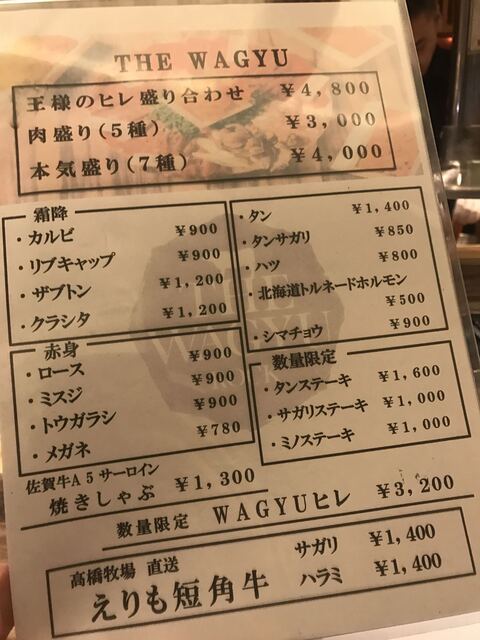 THE WAGYU
王様のヒレ盛り合わせ ¥4,800
肉盛り(5種) ¥3,000
本気盛り(7種) ¥4,000
霜降
・カルビ ¥900
・リブキャップ ¥900
・ザブトン ¥1,200
・クラシタ ¥1,200
赤身
・ロース ¥900
・ミスジ ¥900
・トウガラシ ¥900
・メガネ ¥780
・タン ¥1,400
・タンサガリ ¥850
・ハツ ¥800
・北海道トルネードホルモン
¥500
・シマチョウ ¥900
数量限定
・タンステーキ ¥1,600
・サガリステーキ ¥1,000
・ミノステーキ ¥1,000
佐賀牛A5サーロイン
焼きしゃぶ ¥1,300
数量限定 WAGYUヒレ ¥3,200
高橋牧場 直送
えりも短角牛
サガリ ¥1,400
ハラミ ¥1,400
THE
WAGYU